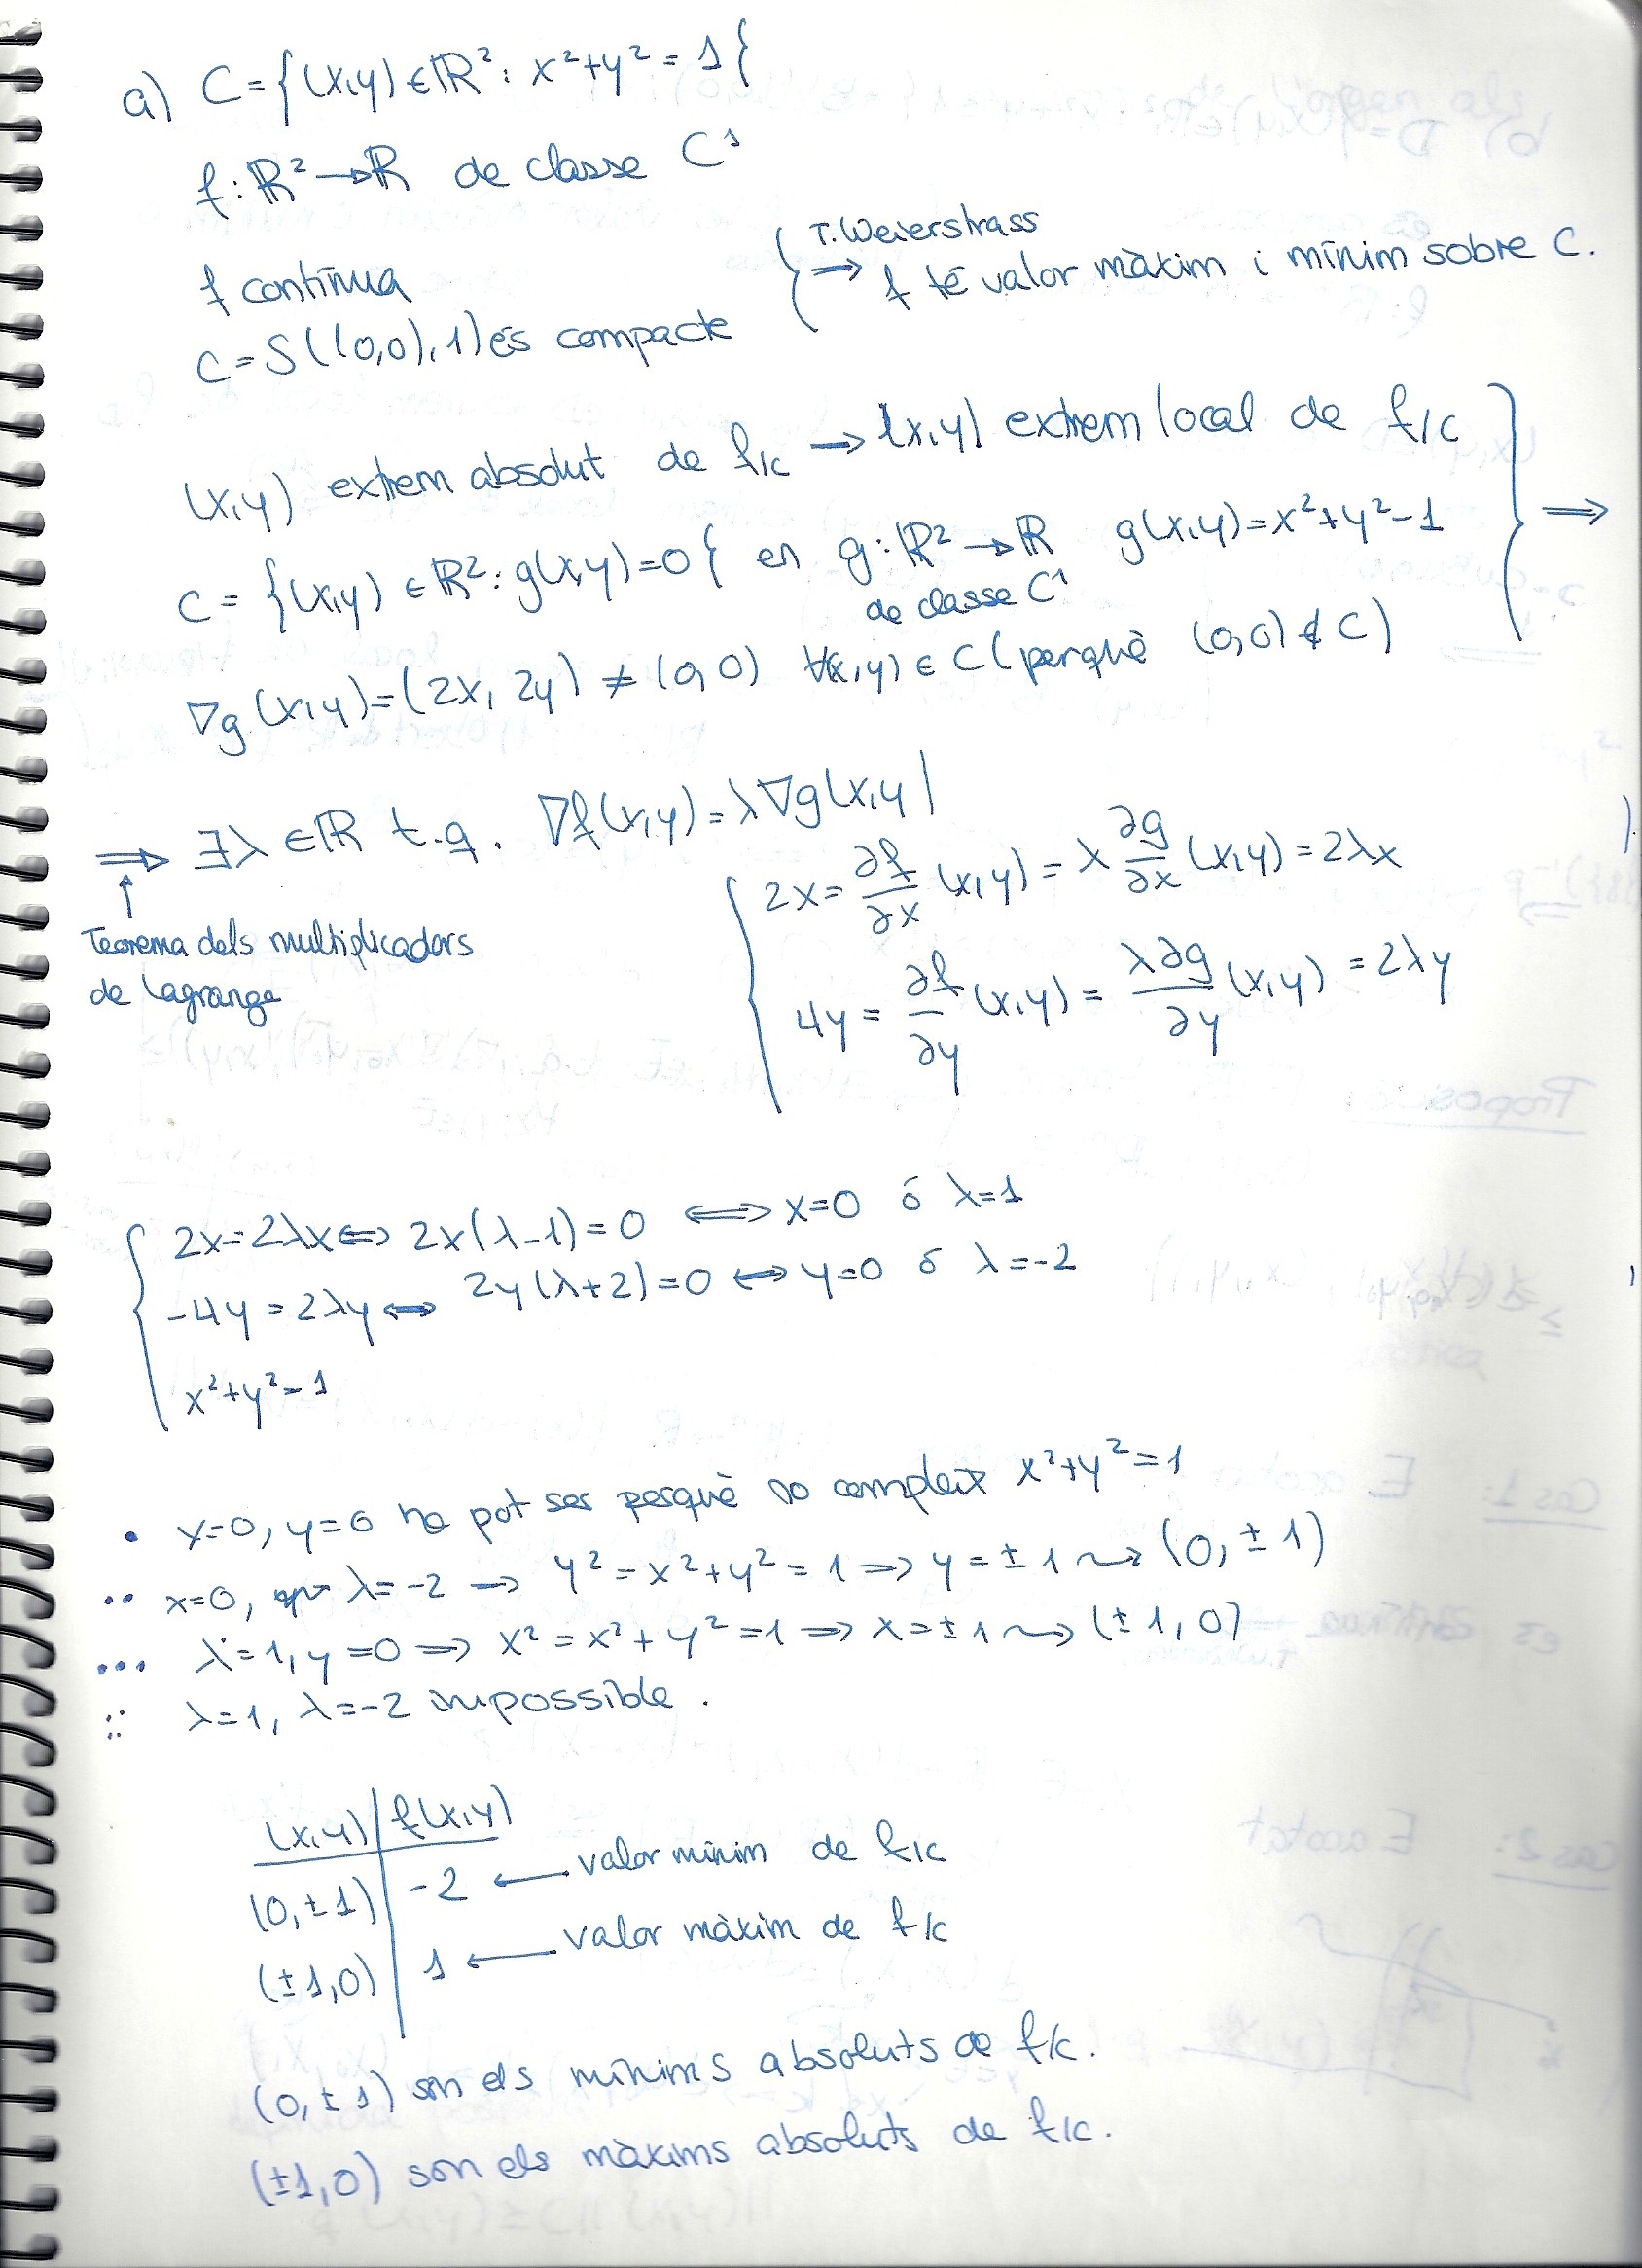 a) C={(x,y)∈ℝ²: x²+y²=1}
f:ℝ²→ℝ de classe C¹
T.Weierstrass
f contínua
⇒ f té valor màxim i mínim sobre C.
C=S((0,0),1) és compacte
(x,y) extrem absolut de f|C → (x,y) extrem local de f|C
C={(x,y)∈ℝ²: g(x,y)=0} en g:ℝ²→ℝ g(x,y)=x²+y²-1 ⇒
de classe C¹
∇g(x,y)=(2x, 2y)≠(0,0) ∀(x,y)∈C (perquè (0,0)∉C)
⇒ ∃λ∈ℝ t.q. ∇f(x,y)=λ∇g(x,y)
2x=∂f/∂x (x,y)=λ ∂g/∂x (x,y)=2λx
Teorema dels multiplicadors
de Lagrange
4y=∂f/∂y (x,y)=λ∂g/∂y (x,y)=2λy
2x=2λx⇔ 2x(λ-1)=0 ⇔ x=0 ó λ=1
-4y=2λy⇔ 2y(λ+2)=0 ↔ y=0 ó λ=-2
x²+y²=1
• x=0, y=0 no pot ser perquè no compleix x²+y²=1
•• x=0, λ=-2 → y²=x²+y²=1⇒y=±1⇝(0,±1)
••• λ=1, y=0⇒ x²=x²+y²=1⇒x=±1⇝(±1,0)
:: λ=1, λ=-2 impossible.
(x,y) | f(x,y)
(0,±1) | -2 ← valor mínim de f|C
(±1,0) | 1 ← valor màxim de f|C
(0,±1) són els mínims absoluts de f|C.
(±1,0) són els màxims absoluts de f|C.